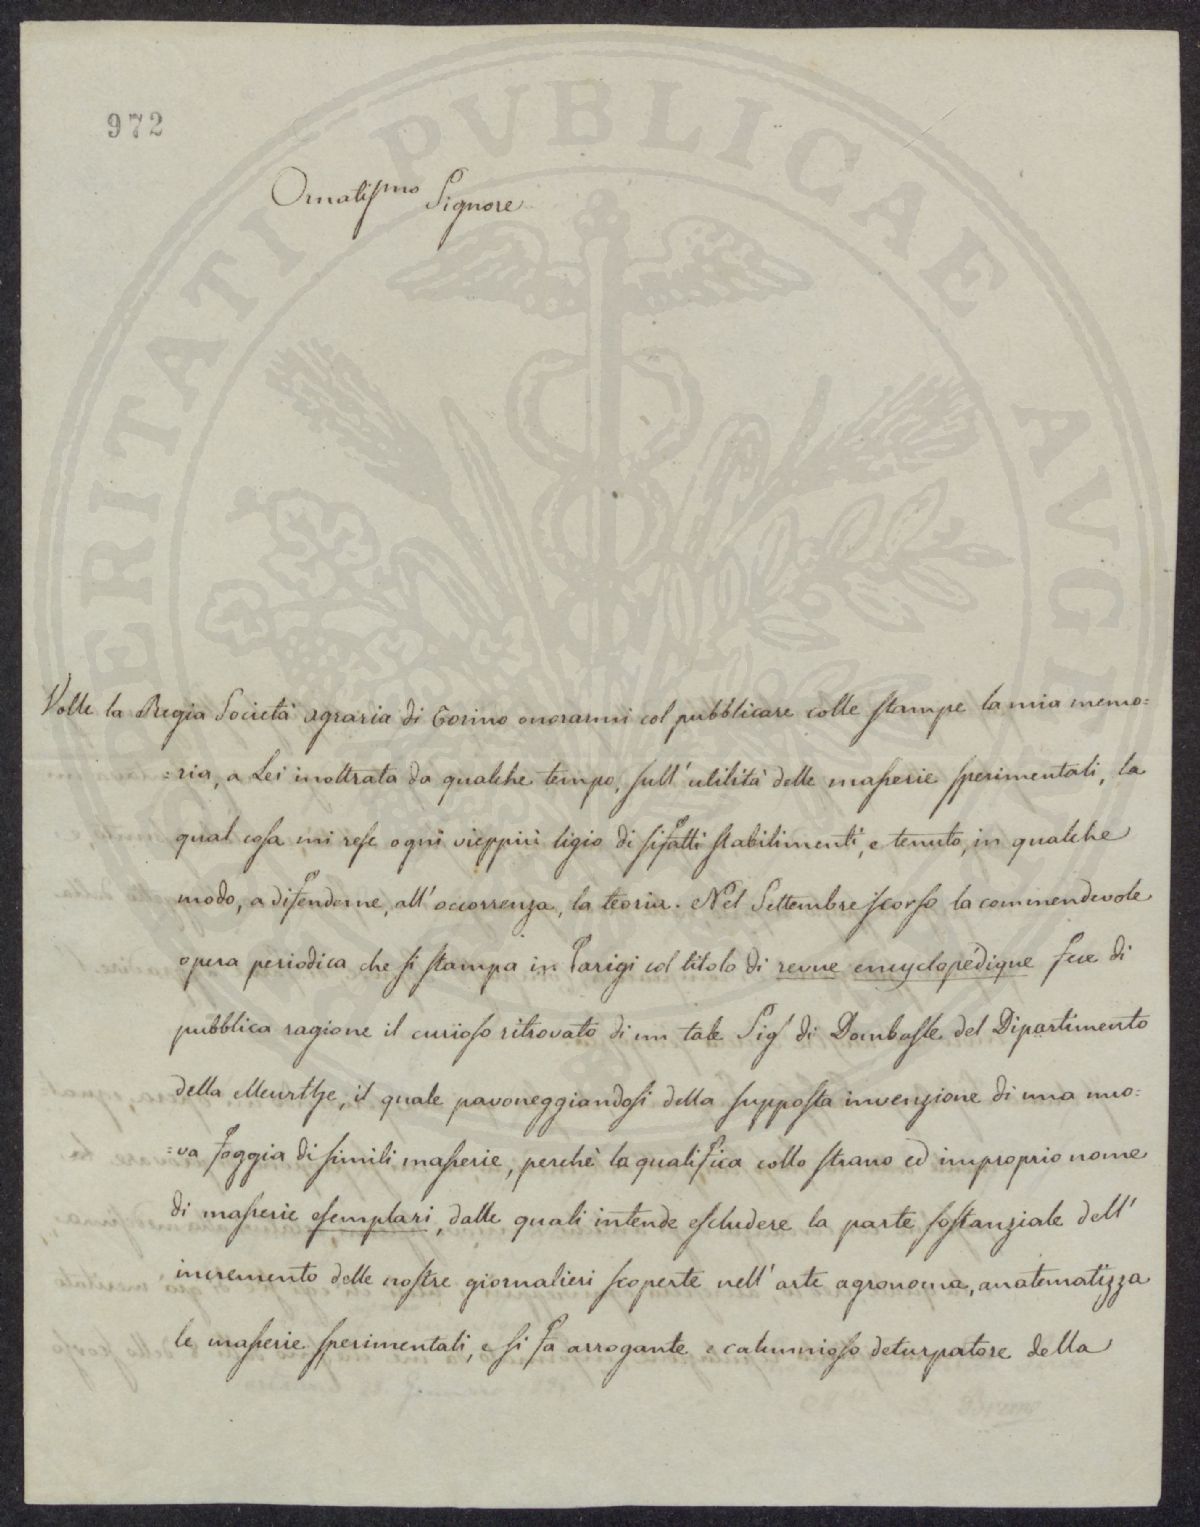 972
Ornatissmo Signore
Volle la Regia Società agraria di Torino onorarmi col pubblicare colle stampe la mia memo=
=ria, a Lei inoltrata da qualche tempo, sull' utilità delle masserie sperimentali, la
qual cosa mi rese ogni vieppiù ligio di sifatti stabilimenti, e tenuto, in qualche
modo, a difenderne, all' occorrenza, la teoria. Nel Settembre scorso la commendevole
opera periodica che si stampa in Parigi col titolo di revue encyclopédique fece di
pubblica ragione il curioso ritrovato di un tale Sigr di Dombasle del Dipartimento
della Meurthe, il quale pavoneggiandosi della supposta invenzione di una nuo=
=va foggia di simili masserie, perchè la qualifica collo strano ed improprio nome
di masserie esemplari, dalle quali intende escludere la parte sostanziale dell'
incremento delle nostre giornalieri scoperte nell' arte agronoma, anatematizza
le masserie sperimentali, e si fa arrogante e calunnioso deturpatore della
VERITATI PVBLICAE AVGE